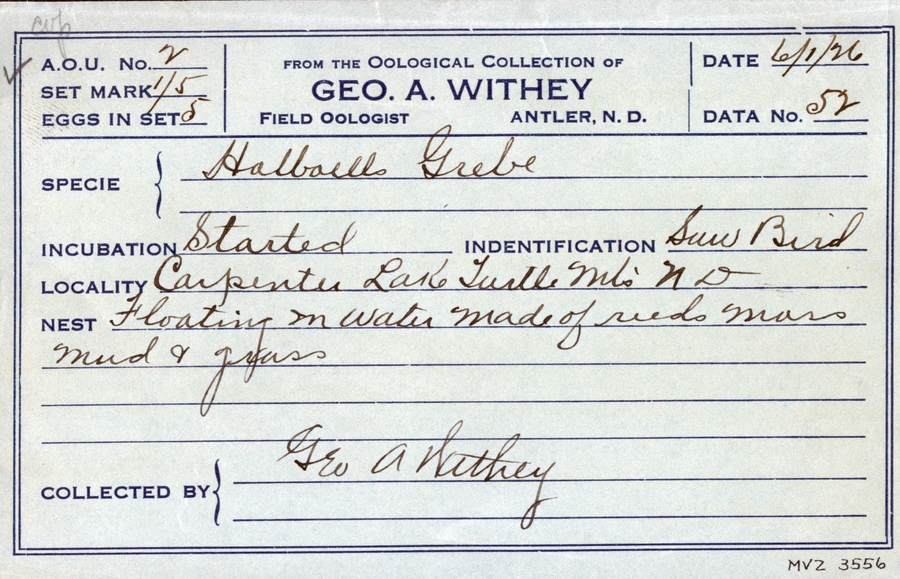 cvp
A.O.U. No. 2
SET MARK 1/5
EGGS IN SET 5
FROM THE OOLOGICAL COLLECTION OF
GEO. A. WITHEY
FIELD OOLOGIST ANTLER, N. D.
DATE 6/1/26
DATA No. 52
SPECIE Holboells Grebe
INCUBATION Started INDENTIFICATION Saw Bird
LOCALITY Carpenter Lake Turtle Mts N D
NEST Floating in water made of reeds moss
mud & grass
COLLECTED BY Geo A Withey
MVZ 3556